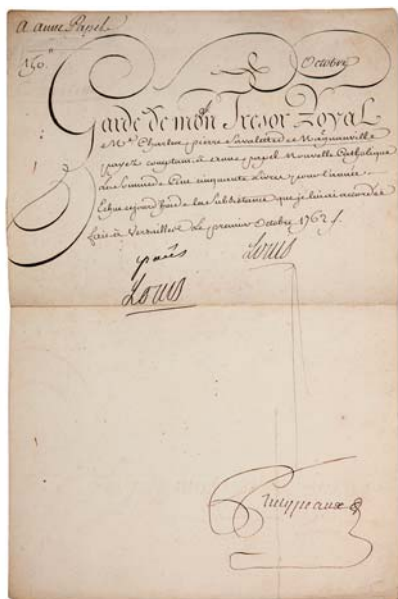 A Anne Papel
150# Octobre
Garde de mon Tresor Royal
Me Charles pierre Savalette de Magnanville
payez comptant à Anne papel Nouvelle Catholique
la Somme de Cent cinquante Livres pour l'année
Echue aujourd'hui de la Subsistance que je lui ai accordée
fait à Versailles Le premier Octobre 1762
Louis
Louis
Phelypeaux